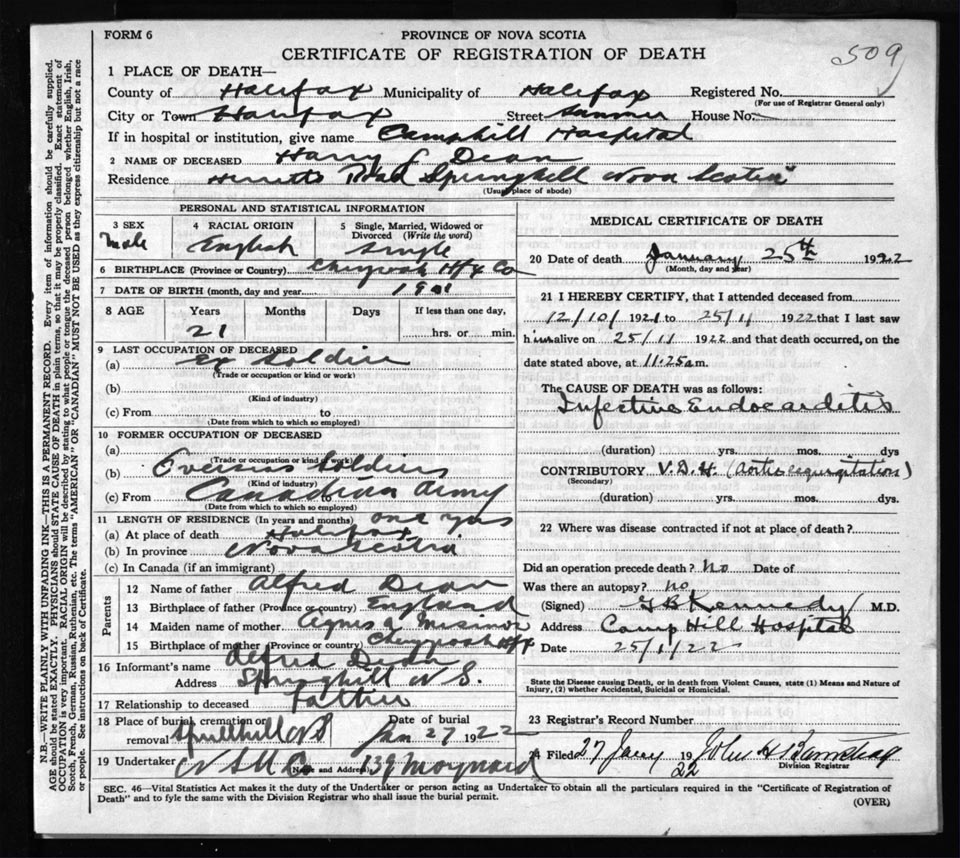 FORM 6
PROVINCE OF NOVA SCOTIA
CERTIFICATE OF REGISTRATION OF DEATH
509
1 PLACE OF DEATH—
County of Halifax Municipality of Halifax Registered No.
(For use of Registrar General only)
City or Town Halifax Street Summer House No.
If in hospital or institution, give name Camphill Hospital
2 NAME OF DECEASED Harry C Dean
Residence Road Springhill Nova Scotia
(Usual place of abode)
PERSONAL AND STATISTICAL INFORMATION
3 SEX 4 RACIAL ORIGIN 5 Single, Married, Widowed or Divorced (Write the word)
Male English Single
6 BIRTHPLACE (Province or Country) Hfx Co
7 DATE OF BIRTH (month, day and year 1901
8 AGE Years Months Days If less than one day,
21 hrs. or min.
9 LAST OCCUPATION OF DECEASED
(a) Ex Soldier
(Trade or occupation or kind or work)
(b)
(Kind of industry)
(c) From to
(Date from which to so employed)
10 FORMER OCCUPATION OF DECEASED
(a)
(Trade or occupation or kind or work)
(b) Overseas Soldier
(Kind of industry)
(c) From Canadian Army to
(Date from which to so employed)
11 LENGTH OF RESIDENCE (In years and months) one yrs
(a) At place of death Halifax
(b) In province Nova Scotia
(c) In Canada (if an immigrant)
Parents
12 Name of father Alfred Dean
13 Birthplace of father (Province or country) England
14 Maiden name of mother Agnes a
15 Birthplace of mother (Province or country) Hfx
16 Informant's name Alfred Dean
Address Springhill N S.
17 Relationship to deceased Father
18 Place of burial, cremation or removal NS Date of burial Jan 27 1922
19 Undertaker N S U Co (Name and Address) 139 Maynard
MEDICAL CERTIFICATE OF DEATH
20 Date of death January 25th 1922
(Month, day and year)
21 I HEREBY CERTIFY, that I attended deceased from
12/10/1921 to 25/1/1922 that I last saw
him alive on 25/1/1922 and that death occurred, on the
date stated above, at 11.25 a m.
The CAUSE OF DEATH was as follows:
Infective Endocarditis
(duration) yrs. mos. dys
CONTRIBUTORY V.D.H. (Aortic regurgitation)
(Secondary)
(duration) yrs. mos. dys.
22 Where was disease contracted if not at place of death?
Did an operation precede death? No Date of
Was there an autopsy? no
(Signed) G B Kennedy M.D.
Address Camp Hill Hospital
Date 25/1/22
State the Disease causing Death, or in death from Violent Causes, state (1) Means and Nature of
Injury, (2) whether Accidental, Suicidal or Homicidal.
23 Registrar's Record Number
24 Filed 27 Jany 1922 John H
Division Registrar
SEC. 46—Vital Statistics Act makes it the duty of the Undertaker or person acting as Undertaker to obtain all the particulars required in the "Certificate of Registration of
Death" and to fyle the same with the Division Registrar who shall issue the burial permit.
(OVER)
N.B.—WRITE PLAINLY WITH UNFADING INK—THIS IS A PERMANENT RECORD. Every item of information should be carefully supplied.
AGE should be stated EXACTLY. PHYSICIANS should STATE CAUSE OF DEATH in plain terms, so that it may be properly classified. Exact statement of
OCCUPATION is very important. RACIAL ORIGIN will be described by stating to what people or tongue the deceased person belonged whether English, Irish,
Scotch, French, German, Russian, Ruthenian, etc. The terms "AMERICAN" OR "CANADIAN" MUST NOT BE USED as they express citizenship but not a race
or people. See instructions on back of Certificate.